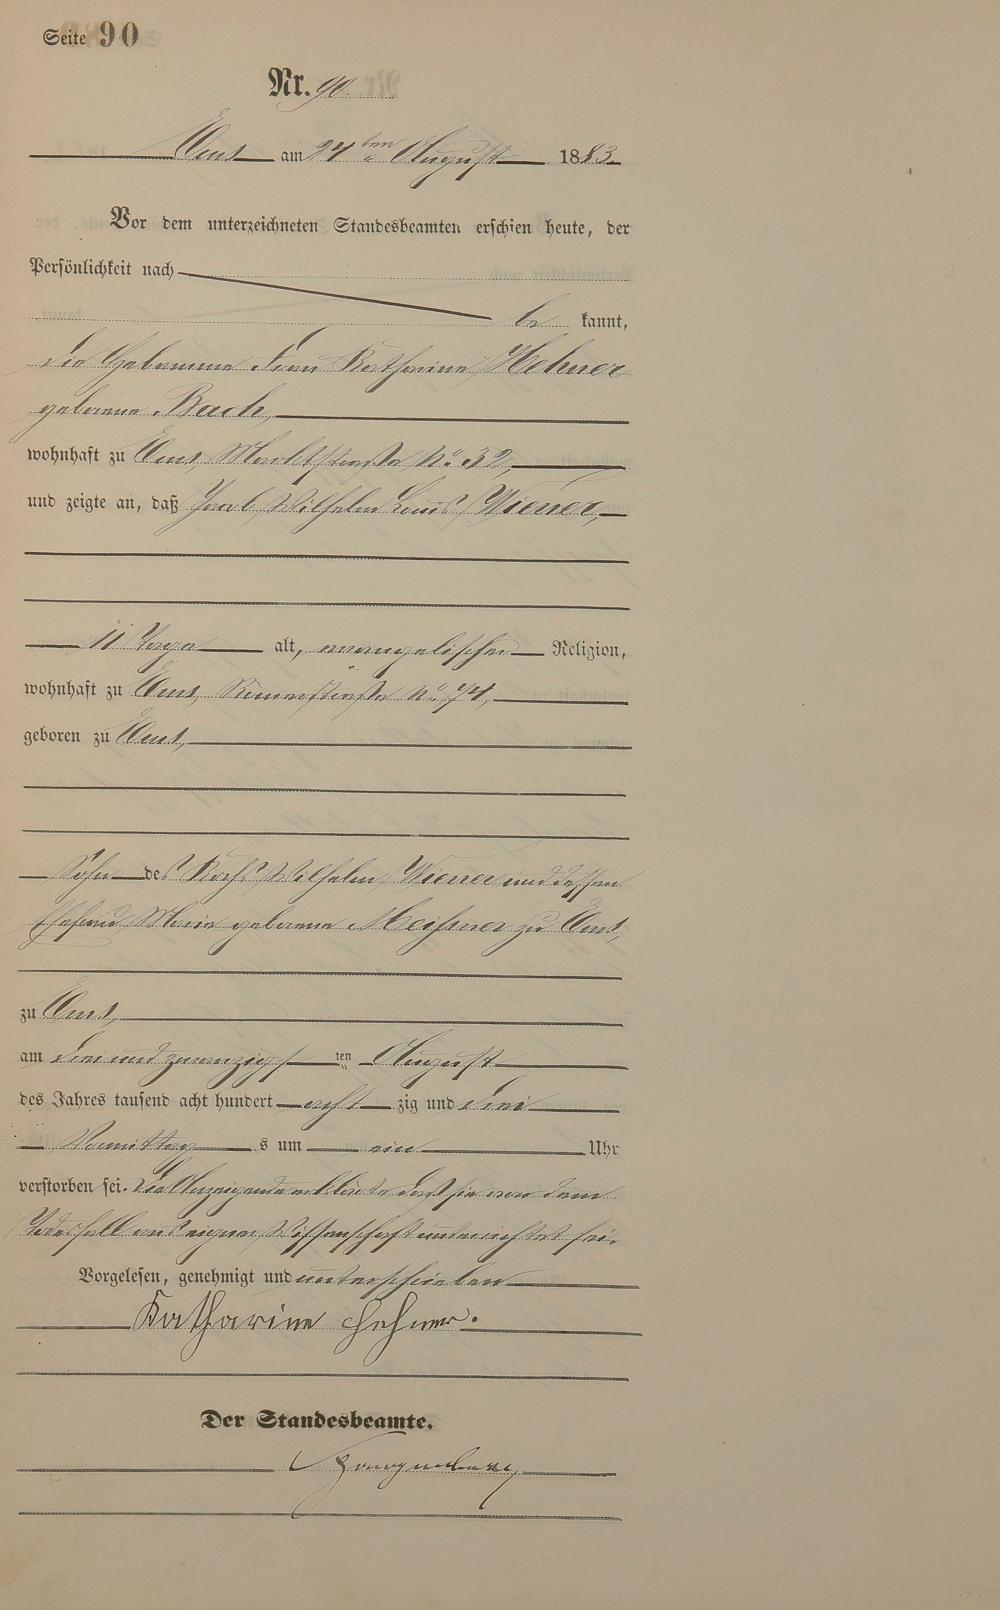 Seite 90
Nr. 90.
Ems am 24ten August 1883.
Vor dem unterzeichneten Standesbeamten erschien heute, der
Persönlichkeit nach
be kannt,
die Hebamme Frau Katharine Hehner
geborene Bach,
wohnhaft zu Ems, Marktstraße No. 32,
und zeigte an, daß Jacob Wilhelm Louis Wiener,
11 Tage alt, evangelischer Religion,
wohnhaft zu Ems, Römerstraße No. 74,
geboren zu Ems,
Sohn des Kochs Wilhelm Wiener und dessen
Ehefrau Marie geborene Meißner zu Ems,
zu Ems,
am drei und zwanzigsten August
des Jahres tausend acht hundert acht zig und drei
Vormittags um ein Uhr
verstorben sei. Die Anzeigende erklärte daß sie von dem
Todesfall aus eigner Wissenschaft unterrichtet sei.
Vorgelesen, genehmigt und unterschrieben
Katharine Hehner.
Der Standesbeamte.